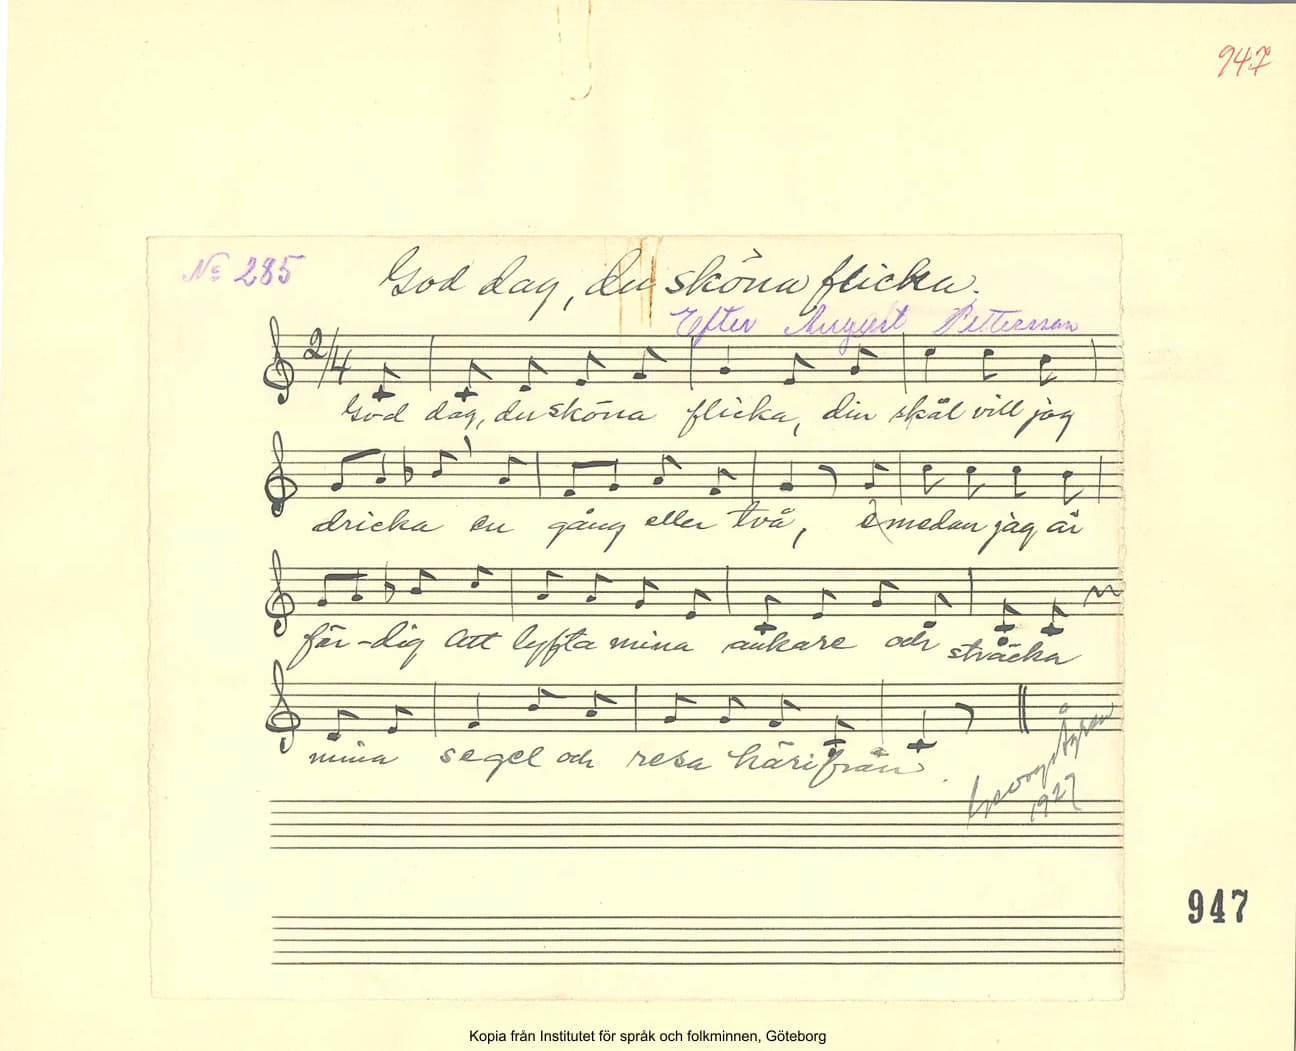 947
No 285
God dag, du sköna flicka.
Efter August Pettersson
2/4
God dag, du sköna flicka, din skål vill jag
dricka en gång eller två, emedan jag är
fär-dig att lyfta mina ankare och sträcka
mina segel och resa härifrån.
1927
947
Kopia från Institutet för språk och folkminnen, Göteborg